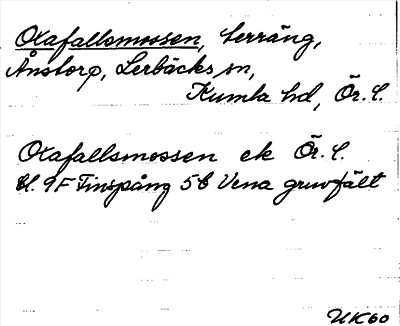 Oxafallsmossen, terräng,
Ånstorp, Lerbäcks sn,
Kumla hd, Ör. l.
Oxafallsmossen ek Ör. l.
bl. 9F Finspång 5b Vena gruvfält
UK60